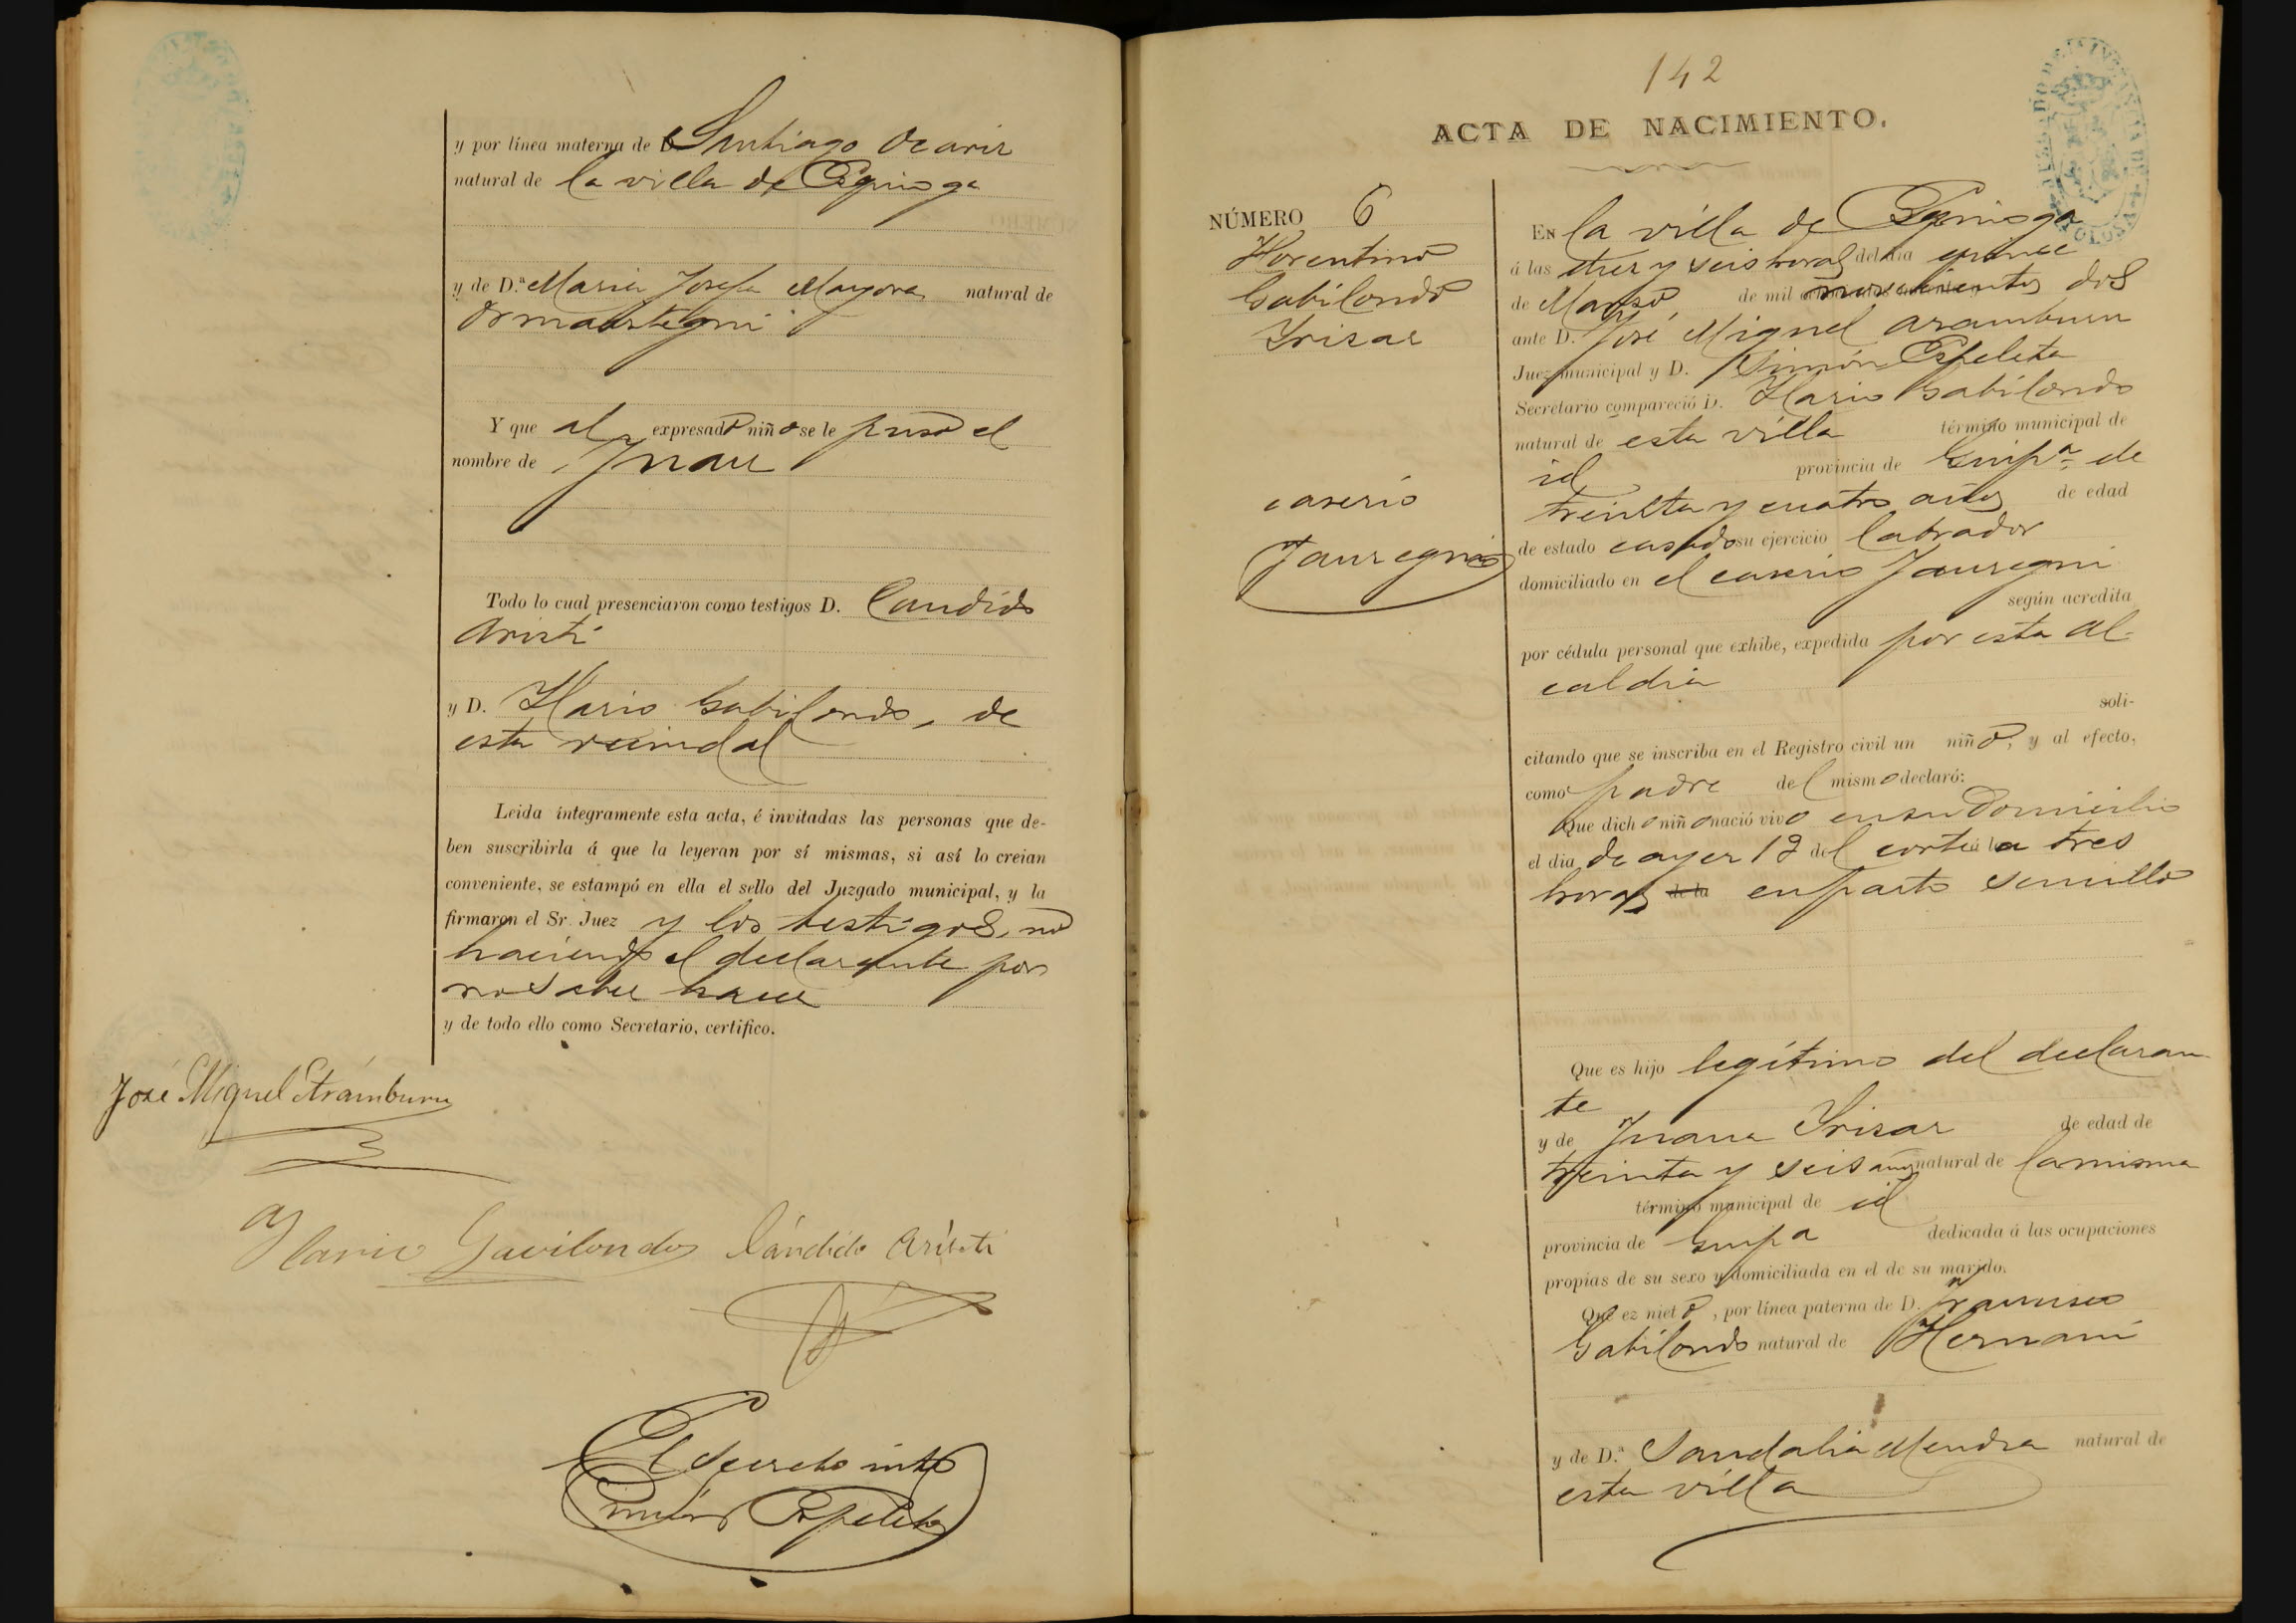 y por línea materna de D. Santiago Ocariz
natural de la villa de Ezquioga
y de D.ª Maria Josefa Mayora natural de
Ormaiztegui
Y que al expresado niño se le puso el
nombre de Juan
Todo lo cual presenciaron como testigos D. Candido
Aristi
y D. Ylario Gabilondo, de
esta vecindad
Leida íntegramente esta acta, é invitadas las personas que de-
ben suscribirla á que la leyeran por sí mismas, si así lo creian
conveniente, se estampó en ella el sello del Juzgado municipal, y la
firmaron el Sr. Juez y los testigos, no
haciendo el declarante por
no saber hacer
y de todo ello como Secretario, certifico.
José Miguel Aramburu
Ylario Gavilondo Cándido Aristi
El Secreto into
Simón Espeleta
142
ACTA DE NACIMIENTO.
NÚMERO 6
Florentino
Gabilondo
Yrizar
caserio
Jauregui
EN la villa de Ezquioga
á las diez y seis horas del dia quince
de Marzo de mil novecientos dos
ante D. José Miguel Aramburu
Juez municipal y D. Simón Espeleta
Secretario compareció D. Ylario Gabilondo
natural de esta villa término municipal de
id provincia de Guipª de
treinta y cuatro años de edad
de estado casado su ejercicio labrador
domiciliado en el caserio Jauregui
según acredita
por cédula personal que exhibe, expedida por esta Al-
caldia
soli-
citando que se inscriba en el Registro civil un niño, y al efecto,
como padre del mismo declaró:
Que dicho niño nació vivo en su domicilio
el dia de ayer del corte á las tres
horas de la en parto sencillo
Que es hijo legítimo del declaran-
te
y de Juana Yrizar de edad de
treinta y seis años natural de la misma
término municipal de id
provincia de Guipª dedicada á las ocupaciones
propias de su sexo y domiciliada en el de su marido.
Que ez nieto, por línea paterna de D. Francisco
Gabilondo natural de Hernani
y de D.ª Sandalia Mendia natural de
esta villa